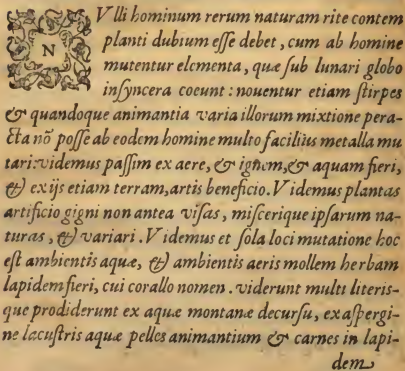 NVlli hominum rerum naturam rite contem
planti dubium esse debet, cum ab homine
mutentur elementa, quæ sub lunari globo
insyncera coeunt: nouentur etiam stirpes
& quandoque animantia varia illorum mixtione pera-
cta nõ posse ab eodem homine multo facilius metalla mu
tari: videmus passim ex aere, & ignem, & aquam fieri,
& ex ijs etiam terram, artis beneficio. Videmus plantas
artificio gigni non antea visas, miscerique ipsarum na-
turas, & variari. Videmus et sola loci mutatione hoc
est ambientis aquæ, & ambientis aeris mollem herbam
lapidem fieri, cui corallo nomen. viderunt multi literis-
que prodiderunt ex aquæ montanæ decursu, ex aspergi-
ne lacustris aquæ pelles animantium & carnes in lapi-
dem